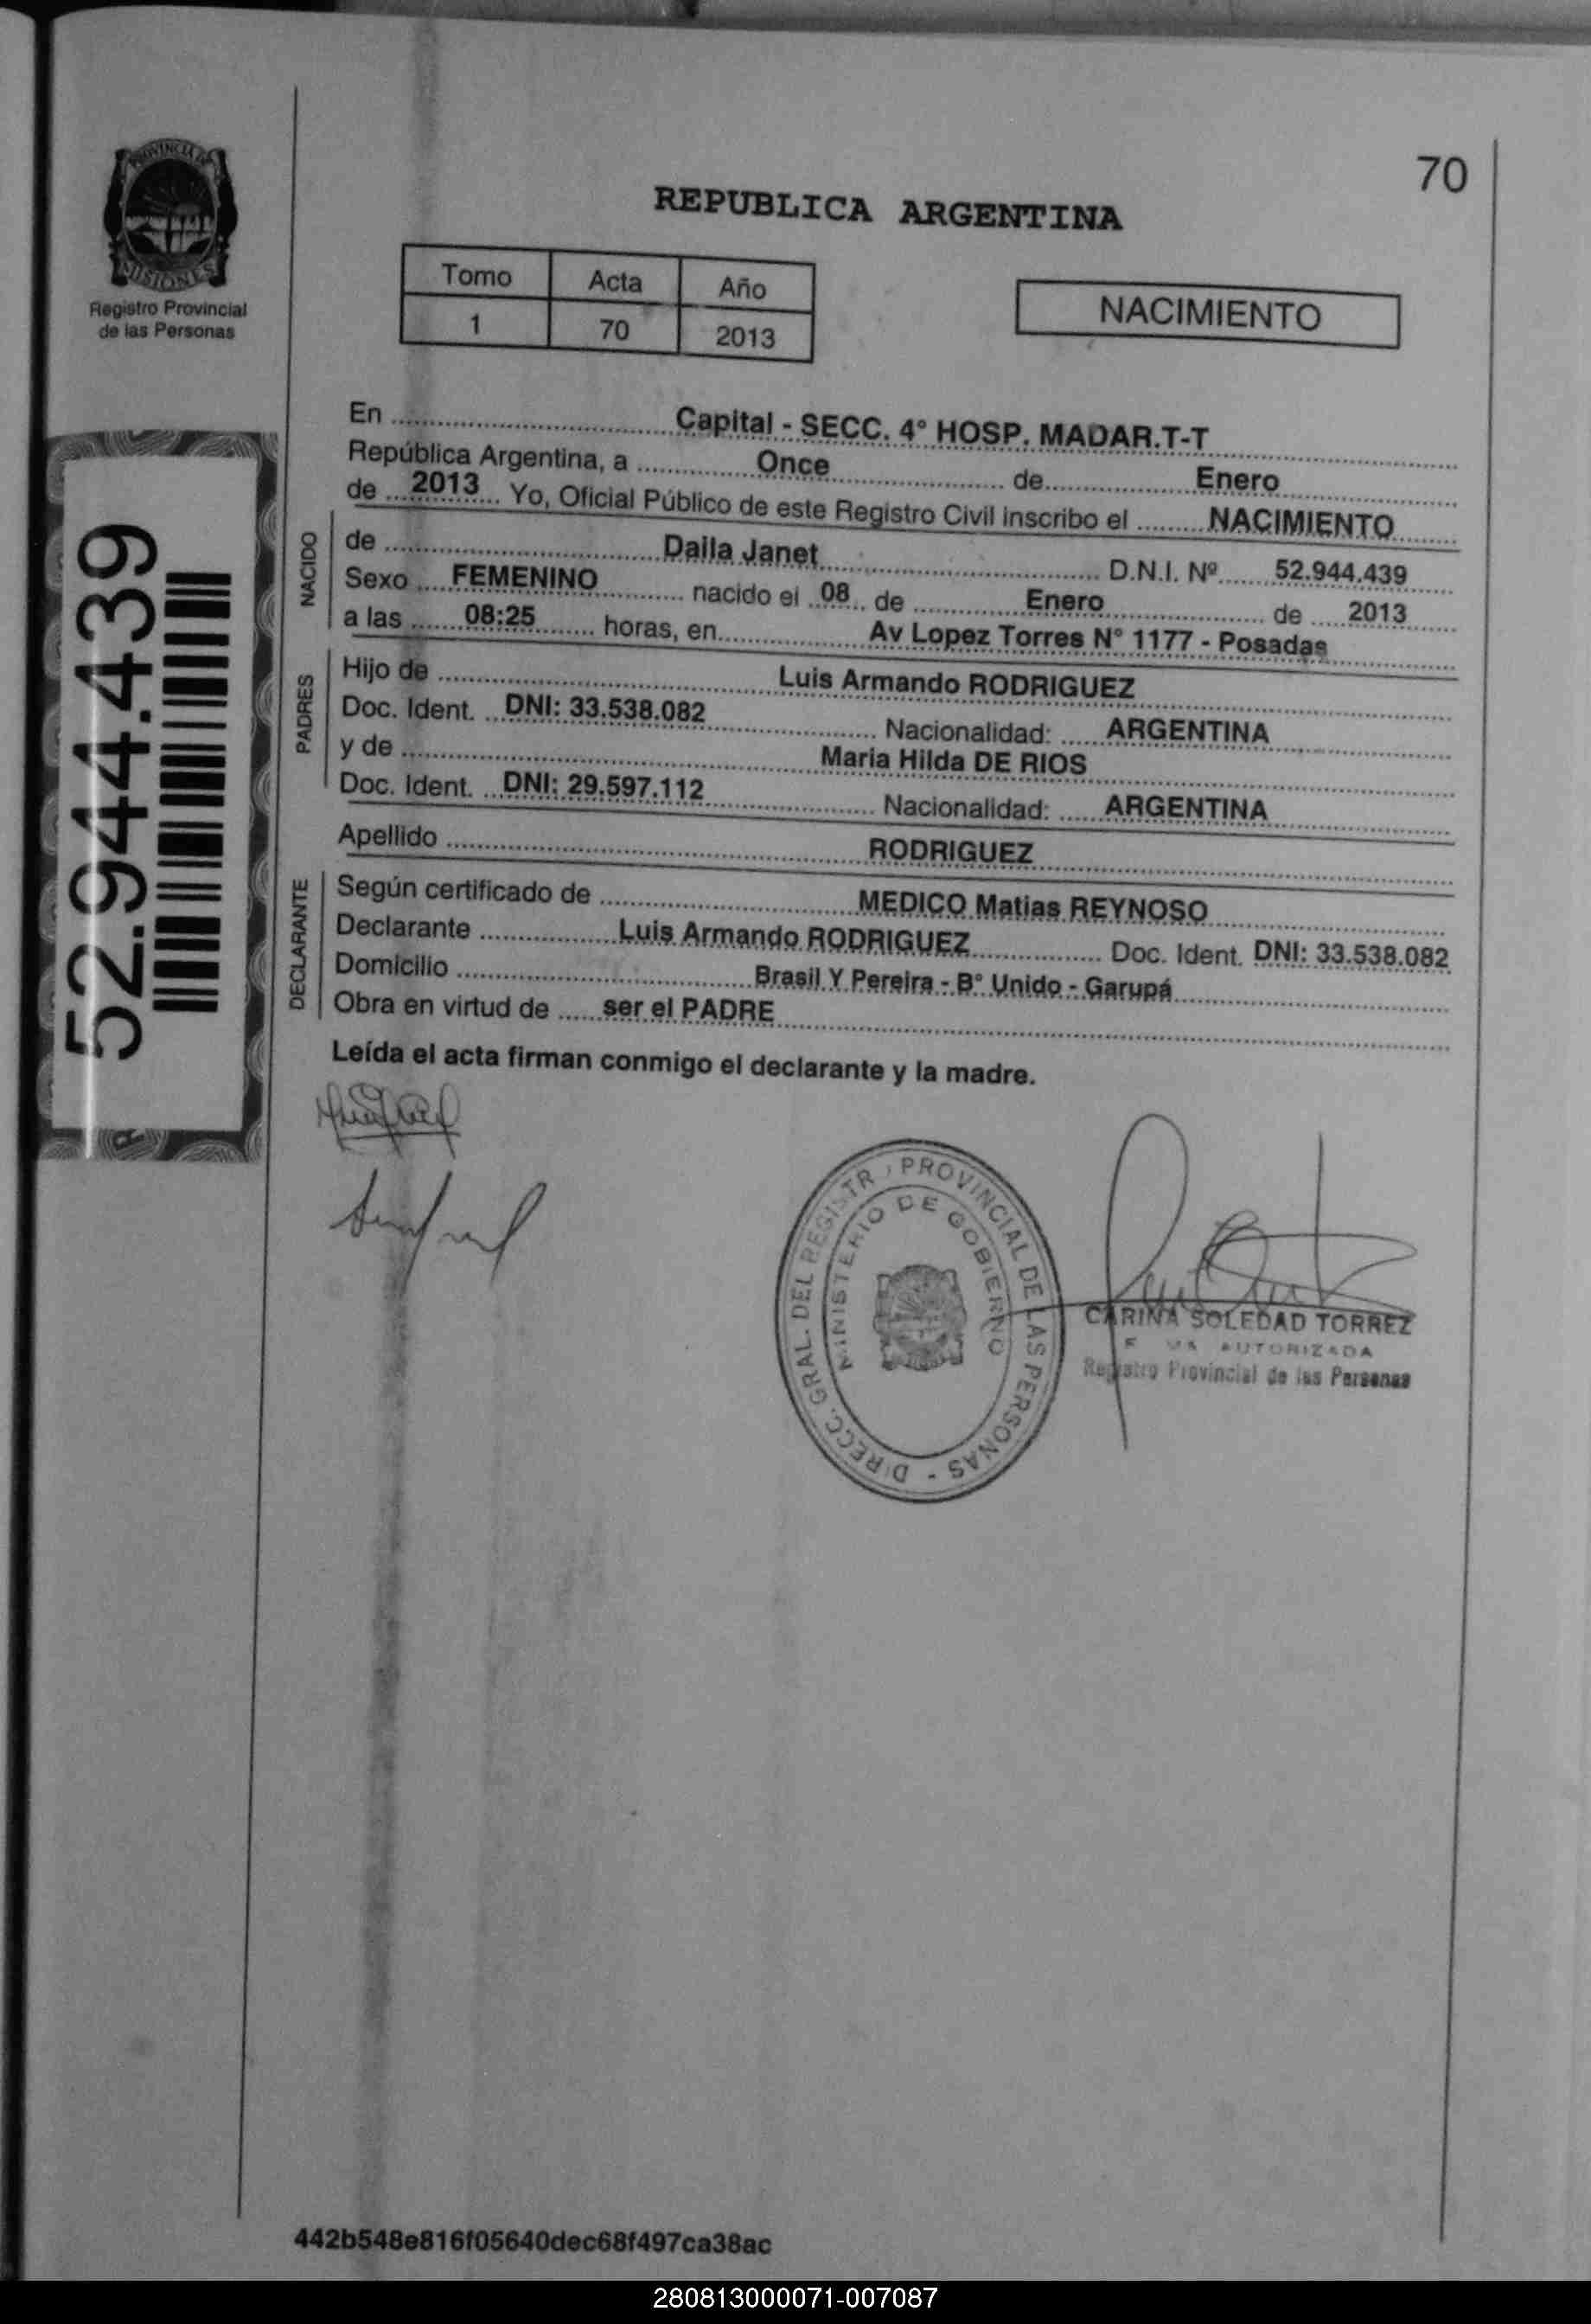 70
PROVINCIA DE
MISIONES
Registro Provincial
de las Personas
REPUBLICA ARGENTINA
Tomo Acta Año
1 70 2013
NACIMIENTO
52.944.439
En Capital - SECC. 4° HOSP. MADAR.T-T
República Argentina, a Once de Enero
de 2013 Yo, Oficial Público de este Registro Civil inscribo el NACIMIENTO
NACIDO
de Daila Janet D.N.I. Nº 52.944.439
Sexo FEMENINO nacido el 08 de Enero de 2013
a las 08:25 horas, en Av Lopez Torres N° 1177 - Posadas
PADRES
Hijo de Luis Armando RODRIGUEZ
Doc. Ident. DNI: 33.538.082 Nacionalidad: ARGENTINA
y de Maria Hilda DE RIOS
Doc. Ident. DNI: 29.597.112 Nacionalidad: ARGENTINA
Apellido RODRIGUEZ
DECLARANTE
Según certificado de MEDICO Matias REYNOSO
Declarante Luis Armando RODRIGUEZ Doc. Ident. DNI: 33.538.082
Domicilio Brasil Y Pereira - B° Unido - Garupá
Obra en virtud de ser el PADRE
Leída el acta firman conmigo el declarante y la madre.
DIRECC. GRAL. DEL REGISTR PROVINCIAL DE LAS PERSONAS -
MINISTERIO DE GOBIERNO
CARINA SOLEDAD TORREZ
AUTORIZADA
Registro Provincial de las Personas
442b548e816f05640dec68f497ca38ac
280813000071-007087